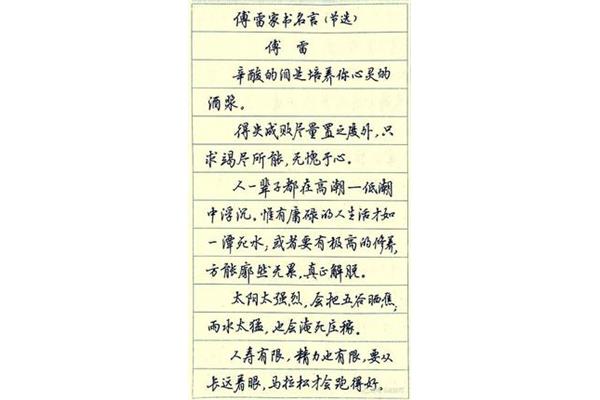 傅雷家书名言(节选)
傅雷
辛酸的泪是培养你心灵的
酒浆。
得失成败尽量置之度外,只
求竭尽所能,无愧于心。
人一辈子都在高潮—低潮
中浮沉。惟有庸碌的人生活才如
一潭死水;或者要有极高的修养,
方能廓然无累,真正解脱。
太阳太强烈,会把五谷晒焦;
雨水太猛,也会淹死庄稼。
人寿有限,精力也有限,要从
长远着眼,马拉松才会跑得好。